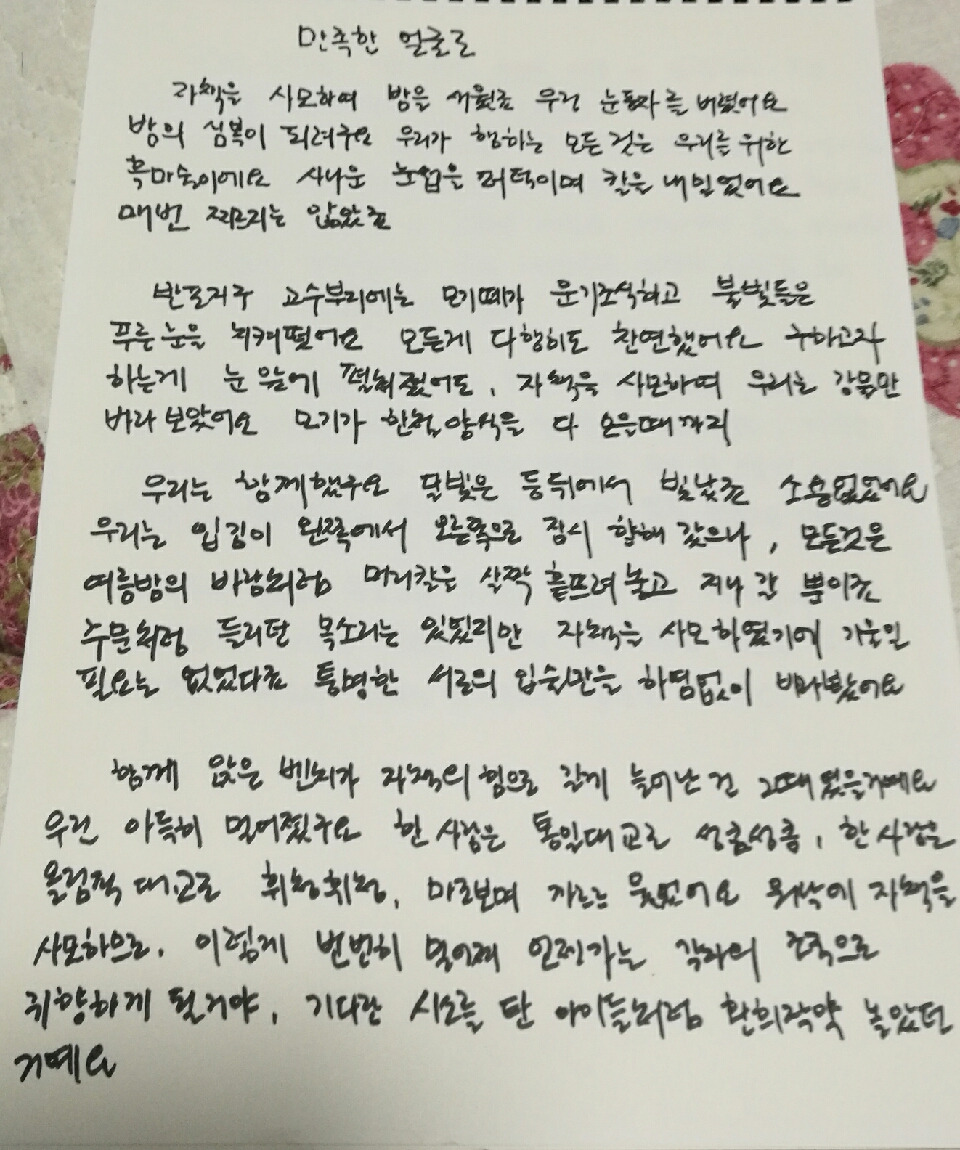 만족한 얼굴로
자책을 사모하여 밤을 새웠죠 우린 눈동자를 버렸어요
밤의 심복이 되려구요 우리가 행하는 모든 것은 우리를 위한
흑마술이에요 사나운 눈썹은 퍼덕이며 칼을 내밀었어요
매번 찌르지는 않았죠
반포지구 고수부지에는 모기떼가 운기조식하고 불빛들은
푸른 눈을 치켜떴어요 모든게 다행히도 찬연했어요 구하고자
하는게 눈 앞에 펼쳐졌어도, 자책을 사모하며 우리는 강물만
바라 보았어요 모기가 한철 양식을 다 쏘을때까지
우리는 함께했구요 달빛은 등뒤에서 빛났죠 소용없었어요
우리는 입김이 왼쪽에서 오른쪽으로 잠시 향해 갔으나, 모든것은
여름밤의 바람처럼 머리칼을 살짝 흩뜨려 놓고 지나 간 뿐이죠
주문처럼 들리던 목소리는 있었지만 자책을 사모하였기에 기울일
필요는 없었다죠 투명한 서로의 입술만을 하염없이 바라봤어요
함께 앉은 벤치가 자책의 힘으로 길게 늘어난 건 그때였을거예요
우린 아득히 멀어졌구요 한 사람은 동작대교로 성큼성큼, 한 사람은
올림픽 대교로 휘청휘청, 마주보며 까르르 웃었어요 뭐삭에 자책을
사모하므로, 이렇게 번번히 멀어져 언젠가는 각자의 건축으로
귀향하게 될거야, 기다란 시소를 탄 아이들처럼 환희작약 놀았던
거예요